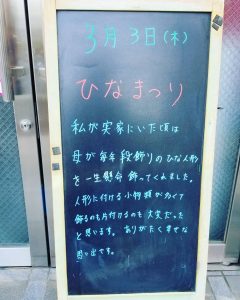 3月3日(木)
ひなまつり
私が実家にいた頃は
母が毎年段飾りのひな人形
を一生懸命飾ってくれました。
人形に付ける小物類が多くて
飾るのも片付けるのも大変だった
と思います。ありがたく幸せな
思い出です。